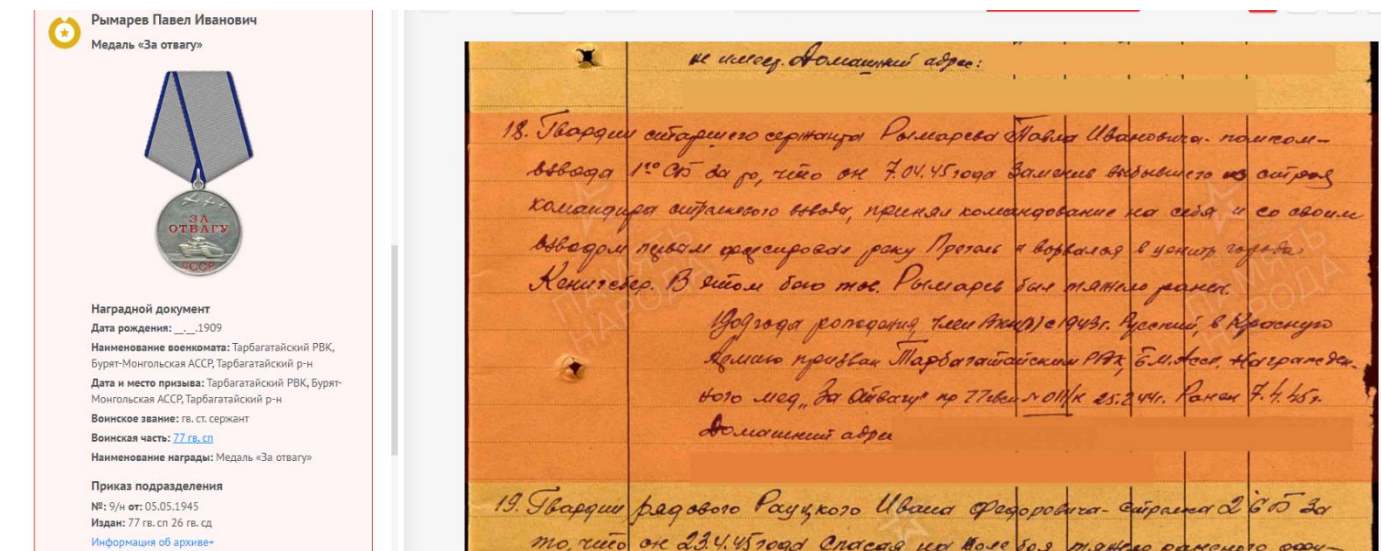 Рымарев Павел Иванович
Медаль «За отвагу»
ЗА
ОТВАГУ
СССР
Наградной документ
Дата рождения: __.__.1909
Наименование военкомата: Тарбагатайский РВК,
Бурят-Монгольская АССР, Тарбагатайский р-н
Дата и место призыва: Тарбагатайский РВК, Бурят-
Монгольская АССР, Тарбагатайский р-н
Воинское звание: гв. ст. сержант
Воинская часть: 77 гв. сп
Наименование награды: Медаль «За отвагу»
Приказ подразделения
№: 9/н от: 05.05.1945
Издан: 77 гв. сп 26 гв. сд
Информация об архиве+
не имеет. Домашний адрес:
18. Гвардии старшего сержанта Рымарева Павла Ивановича - помком-
взвода 1го СБ за то, что он 7.04.45 года заменив выбывшего из строя
командира стрелкового взвода, принял командование на себя и со своим
взводом первым форсировал реку Прегель и ворвался в центр города
Кенигсберг. В этом бою тов. Рымарев был тяжело ранен.
1909 года рождения, член ВКП(б) с 1943г. Русский, в Красную
Армию призван Тарбагатайским РВК, Б.М.АССР. Награжден-
ного мед. „За Отвагу" пр 77 гвсп № 011/н 25.2.44г. Ранен 7.4.45г.
Домашний адрес
19. Гвардии рядового Рауцкого Ивана Федоровича - стрелка 2 СБ за
то, что он 23.4.45 года спасая на поле боя тяжело раненого офи-
ПАМЯТЬ
НАРОДА
ПАМЯТЬ
НАРОДА